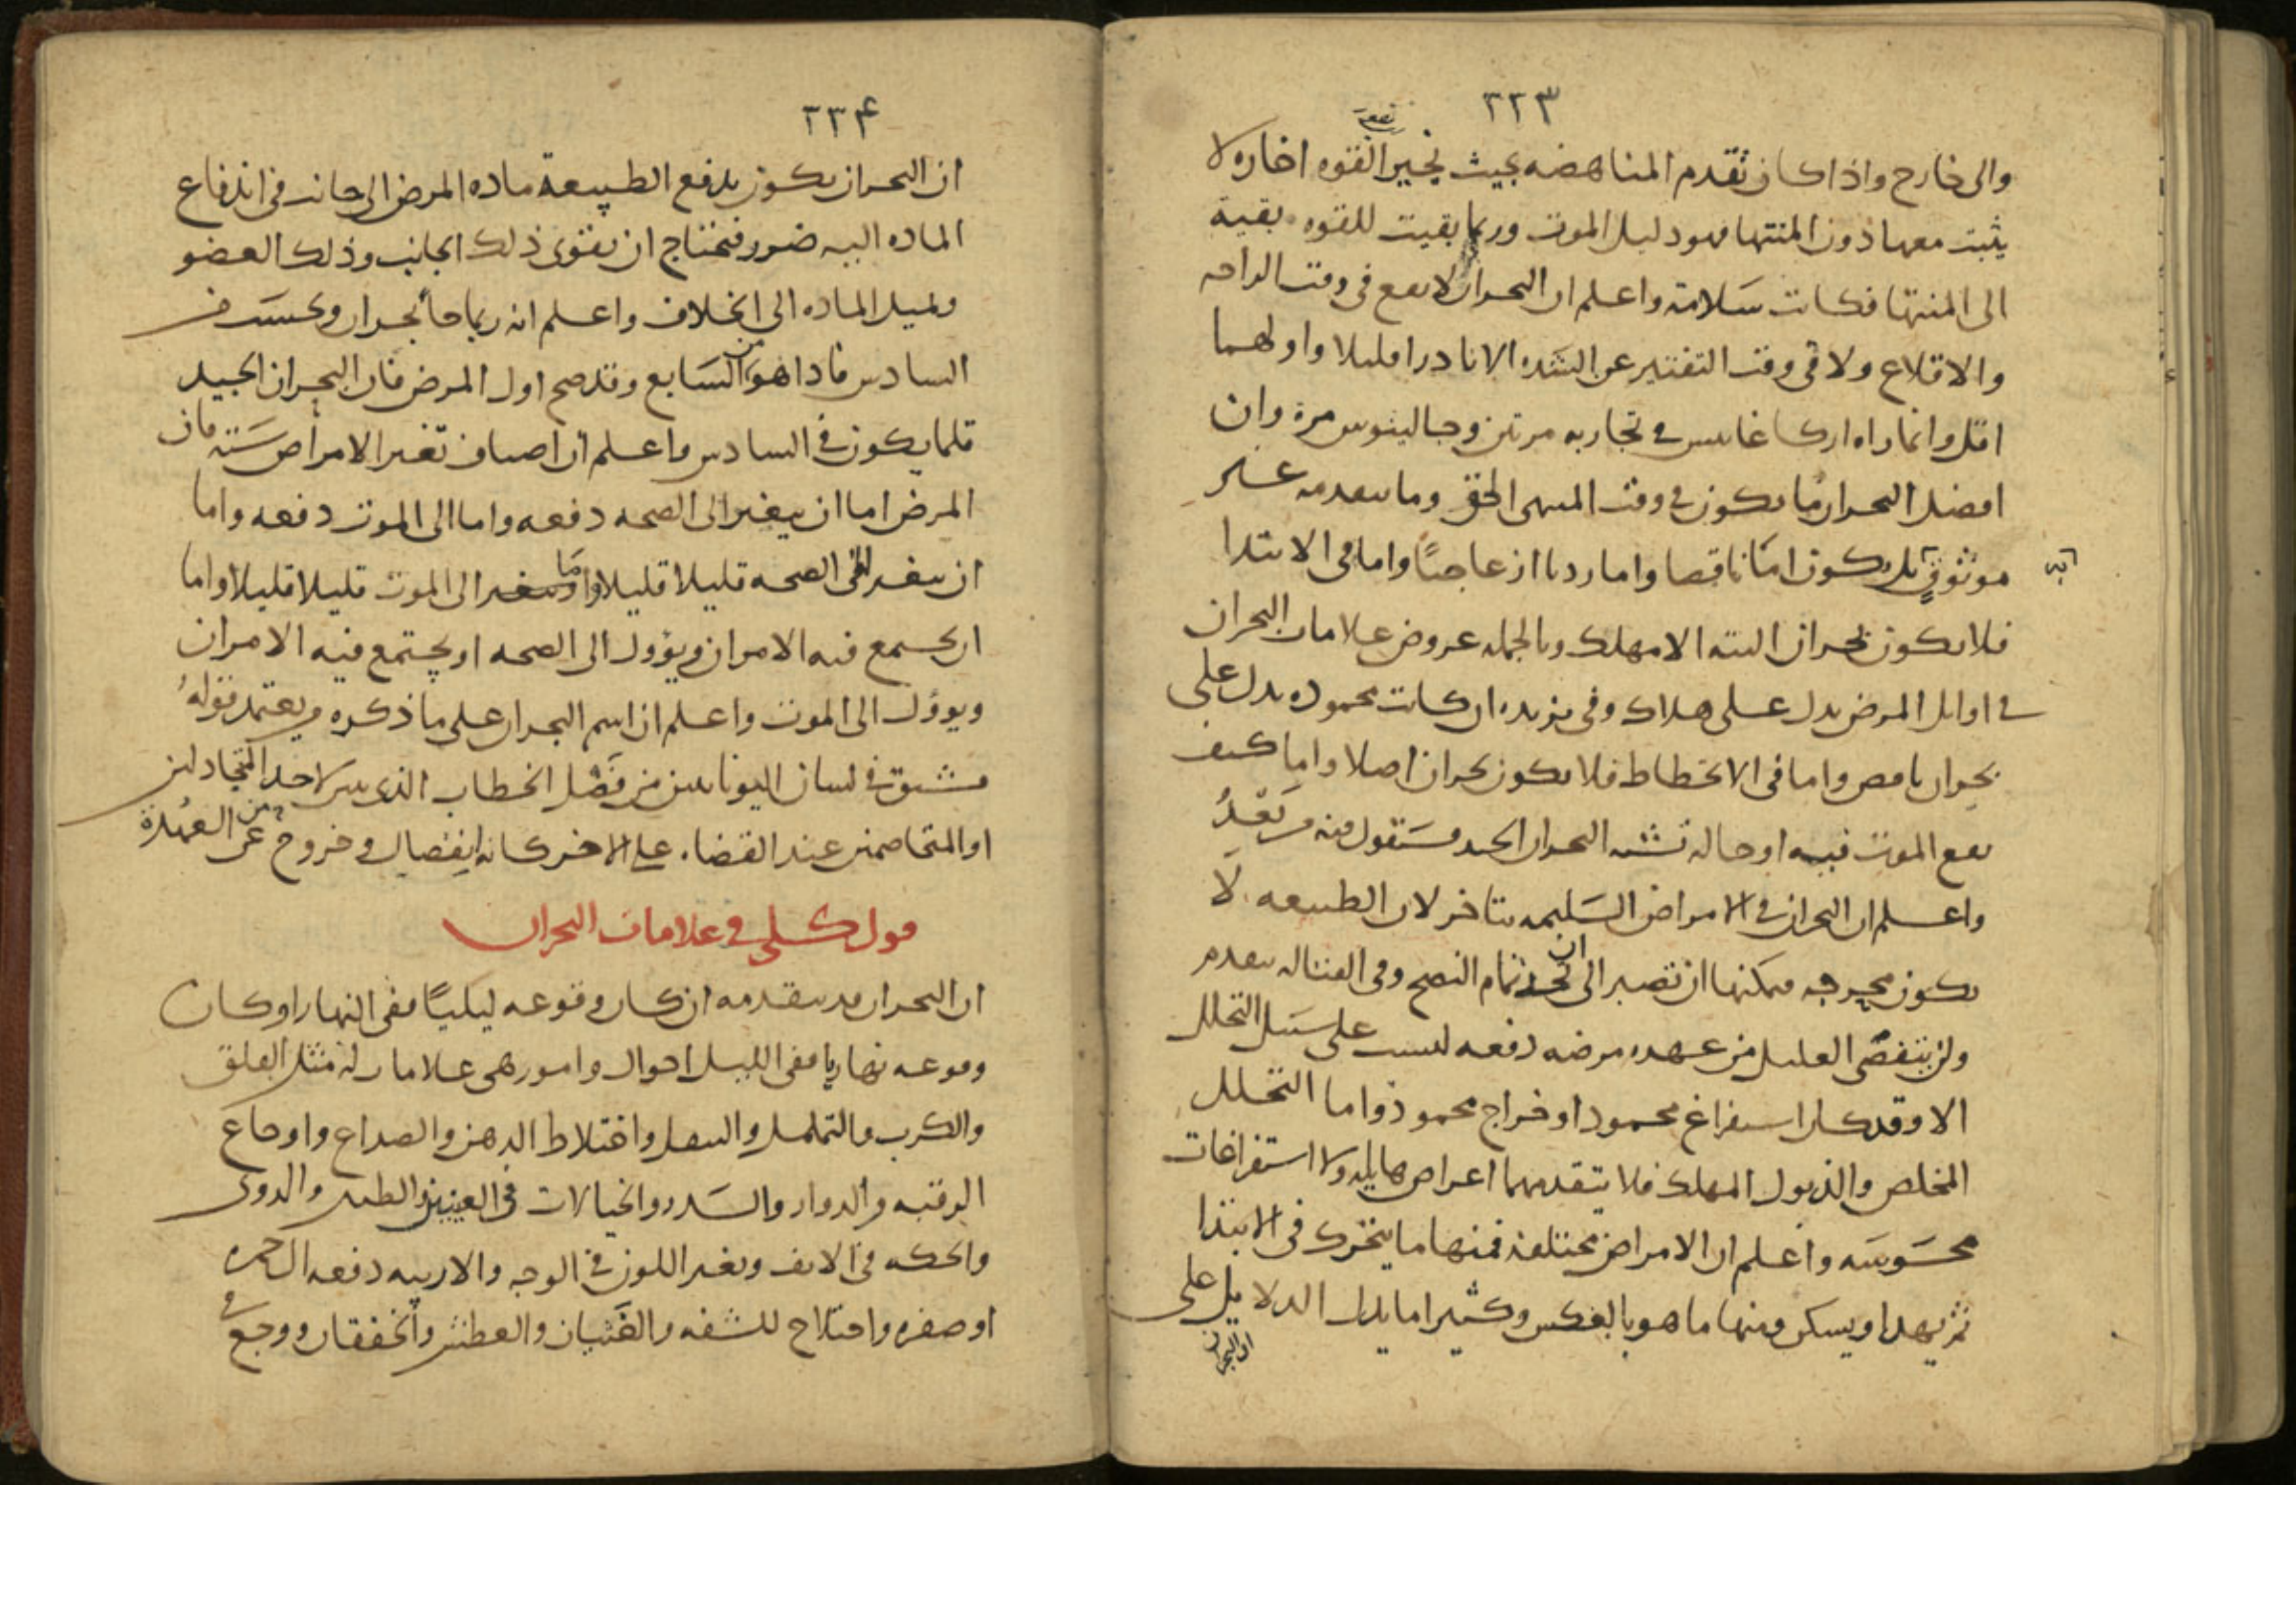 ٢٢٣
والى خارج واذا كان تقدم المناهضه بحيث تخير القوه اخاره لا
يثبت معها دون المنتها فهو دليل الموت وربما بقيت للقوه بقية
الى المنتها فكانت سلامة واعلم ان البحران لا يقع فى وقت الراحه
والاقلاع ولا فى وقت التفتير عن الشده الا نادرا قليلا واولهما
اقل وانما راه اركاغانيس فى تجاربه مرتين وجالينوس مرة وان
افضل البحران ما يكون فى وقت المنتهى الحق وما يتقدمه غير
موثوق به بل يكون اما ناقصا واما رديا ازعاجيا واما فى الابتدا
فلا يكون بحران البته الا مهلك وبالجمله عروض علامات البحران
فى اوايل المرض يدل على هلاك وفى تزيده ان كانت محموده يدل على
بحران ناقص واما فى الانحطاط فلا يكون بحران اصلا واما كيف
يقع الموت فيه او حالة تشبه البحران الجيد فسنقول فيه من بعد
واعلم ان البحران فى الامراض السليمه يتاخر لان الطبيعه لا
يكون محرجه فيمكنها ان تصبر الى ان تجد تمام النضج وفى القتاله يتقدم
ولن يتفصى العليل من عهده مرضه دفعه ليست على سبيل التحلل
الا وقد كان استفراغ محمود او خراج محمود واما التحلل
المخلص والذبول المهلك فلا يتقدمهما اعراض هايله ولا استفراغات
محسوسه واعلم ان الامراض مختلفة فمنها ما يتحرك فى الابتدا
ثم يهدا ويسكن ومنها ما هو بالعكس وكثيرا ما يدل الدلايل على
ان البحران
٢٣۴
ان البحران يكون بدفع الطبيعة ماده المرض الى جانب فى اندفاع
الماده اليه ضرر فتحتاج ان يقوى ذلك الجانب وذلك العضو
وتميل الماده الى الخلاف واعلم انه ربما جا بحران وحسب فى
السادس فاذا هو من السابع وقد صح اول المرض فان البحران الجيد
قلما يكون فى السادس واعلم ان اصناف تغير الامراض سته فان
المرض اما ان يتغير الى الصحه دفعه واما الى الموت دفعه واما
ان يتغير الى الصحه قليلا قليلا واما يتغير الى الموت قليلا قليلا واما
ان يجتمع فيه الامران ويؤول الى الصحه او يجتمع فيه الامران
ويوؤل الى الموت واعلم ان اسم البحران على ما ذكره من يعتمد قوله
مشتق فى لسان اليونانيين من فصل الخطاب الذى يتبين لاحد المتجادلين
او المتخاصمين عند القضاء على الاخر كانه انفصال وخروج عن العهدة
قول كلى فى علامات البحران
ان البحران قد يتقدمه ان كان وقوعه ليليًا ففى النهار او كان
وقوعه نهاريا ففى الليل احوال وامور هى علامات له مثل القلق
والكرب والتململ والتنقل واختلاط الذهن والصداع واوجاع
الرقبه والدوار والسدر والخيالات فى العينين والطنين والدوى
والحكه فى الانف وتغير اللون فى الوجه والارنبه دفعه الى حمره
او صفره واختلاج للشفه والغثيان والعطش والخفقان ووجع فى